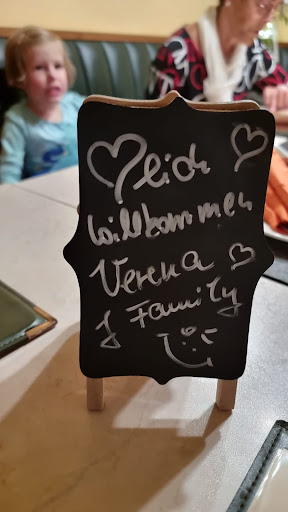 ♡lich
willkommen
Verena
& Family